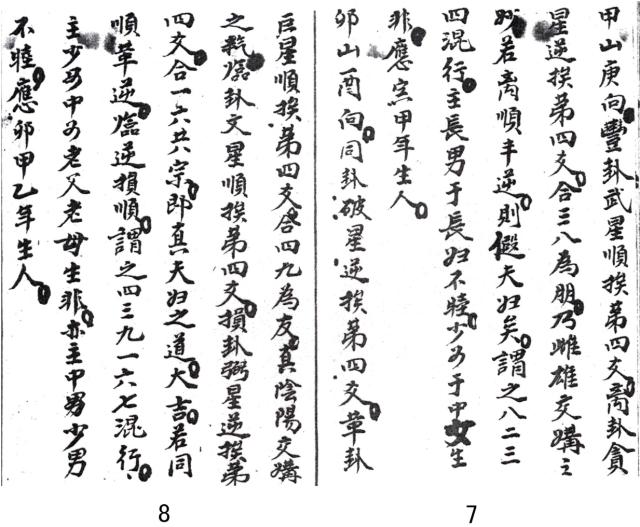 甲山庚向豐卦武星順挨第四爻離卦貪
星逆挨第四爻合三八為朋乃雌雄交媾之
妙若离順丰逆則假夫妇矣謂之八二三
四混行主長男于長妇不睦少女于中女生
非應窯甲年生人
卯山酉向同卦破星逆挨第四爻革卦
巨星順挨第四爻合四九為友真陰陽交媾
之戟爚卦文星順挨第四爻損卦弼星逆挨第
四爻合一六共宗即真夫妇之道大吉若同
順革逆爚逆損順謂之四三九一六七混行
主少女中女老父老母生非亦主中男少男
不睦應卯甲乙年生人
8
7